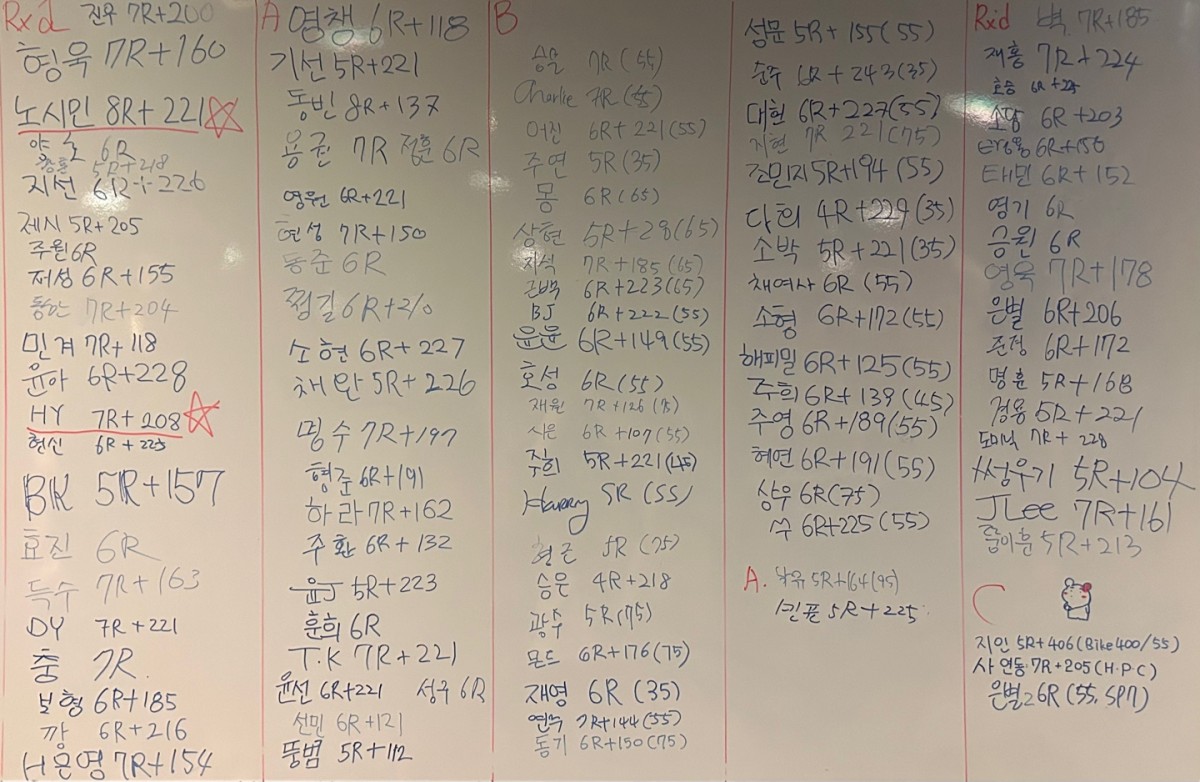 Rxd 진우 7R+200
형욱 7R+160
노시민 8R+221
6R
5R+218
지선 6R+226
제시 5R+205
주원 6R
저성 6R+155
동산 7R+204
민겨 7R+118
윤아 6R+228
HY 7R+208
현신 6R+225
BK 5R+157
효진 6R
득수 7R+163
DY 7R+221
충 7R
보형 6R+185
깡 6R+216
서은영 7R+154
A 영책 6R+118
기선 5R+221
동빈 8R+137
용권 7R 정훈 6R
영원 6R+221
현성 7R+150
동준 6R
찜길 6R+210
소현 6R+227
채완 5R+226
명수 7R+197
형준 6R+191
하라 7R+162
주환 6R+132
윤J 5R+223
훈희 6R
T.K 7R+221
윤선 6R+221 성구 6R
선민 6R+121
뚱범 5R+112
B
승호 7R (55)
Charlie 7R
어진 6R+221(55)
주연 5R(35)
몽 6R(65)
상현 5R+28(65)
지석 7R+185(65)
근백 6R+223(65)
BJ 6R+222(55)
윤윤 6R+149(55)
호성 6R(55)
재원 7R+126(75)
시은 6R+107(55)
주희 5R+221(45)
Harry 5R(55)
현근 5R(75)
승은 4R+218
광수 5R(75)
몬드 6R+176(75)
재영 6R(35)
연수 7R+144(55)
동기 6R+150(75)
성문 5R+155(55)
순주 6R+243(35)
대현 6R+227(55)
지현 7R 221(75)
조민지 5R+194(55)
다희 4R+229(35)
소박 5R+221(35)
채여사 6R(55)
소형 6R+172(55)
해피밀 6R+125(55)
주희 6R+139(45)
주영 6R+189(55)
혜연 6R+191(55)
상우 6R(75)
수 6R+225(55)
A. 5R+164(95)
빈폴 5R+225
Rxd 벽 7R+185
재홍 7R+224
호승 6R+225
소망 6R+203
6R+156
태민 6R+152
영기 6R
승원 6R
영욱 7R+178
은별 6R+206
준정 6R+172
명훈 5R+168
경용 5R+221
도미닉 7R+228
쌍우기 5R+104
JLee 7R+161
5R+213
C
지인 5R+406(Bike400/55)
사연동 7R+205(H.P.C)
은별2 6R(55, SP7)